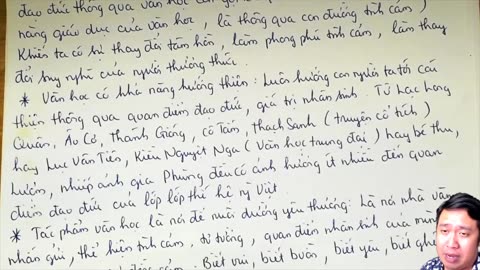 đạo đức thông qua văn học
năng giáo dục của văn học, là thông qua con đường tình cảm,
Khiến ta có sự thay đổi tâm hồn, làm phong phú tình cảm, làm thay
đổi suy nghĩ của người thưởng thức.
* Văn học có khả năng hướng thiện: Luôn hướng con người ta tới cái
thiện thông qua quan điểm đạo đức, giá trị nhân sinh. Từ Lạc Long
Quân, Âu Cơ, Thánh Gióng, cô Tấm, Thạch Sanh (truyện cổ tích)
hay Lục Vân Tiên, Kiều Nguyệt Nga (Văn học trung đại) hay bé thu,
Lượm, nhiếp ảnh gia Phùng đều có ảnh hưởng ít nhiều đến quan
điểm đạo đức của lớp lớp thế hệ ng Việt
* Tác phẩm văn học là nơi để nuôi dưỡng yêu thương: Là nơi nhà văn
nhắn gửi, thể hiện tình cảm, tư tưởng, quan điểm nhân sinh của mình
Biết vui, biết buồn, biết yêu, biết ghét